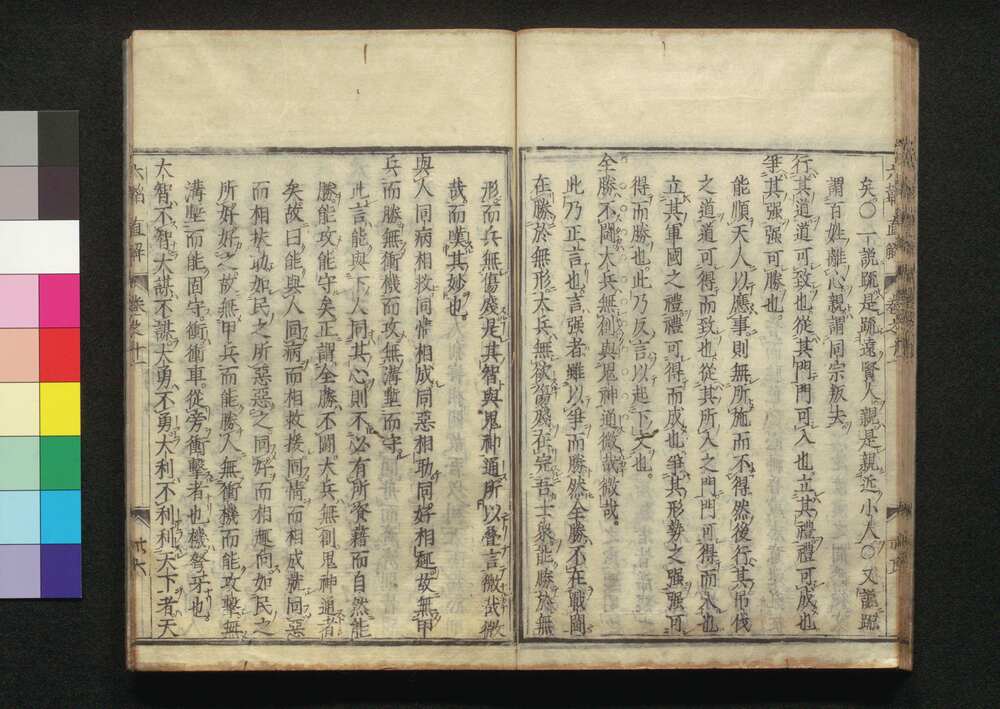 矣○一說踈是踈遠賢人親是親近小人○又說踈
謂百姓離心親謂同宗叛夫
行其道道可致也從其門門可入也立其禮禮可成也
爭其强强可勝也
能順天人以應事則無所施而不得然後行其弔伐
之道道可得而致也從其所入之門門可得而入也
立其軍國之禮禮可得而成也爭其形勢之强强可
得而勝也此乃反言以起下文也
全勝不鬪大兵無創與鬼神通微哉微哉
此乃正言也言强者雖以爭而勝然全勝不在戰鬪
在勝於無形大兵無欲傷殘在完吾士衆能勝於無
形而兵無傷殘是其智與鬼神通所以疊言微哉微
哉而嘆其妙也
與人同病相救同情相成同惡相助同好相趣故無甲
兵而勝無衝機而攻無溝塹而守
此言能與下人同其心則不必有所資藉而自然能
勝能攻能守矣正謂全勝不鬪大兵無創鬼神通者
矣故曰能與人同病而相救援同情而相成就同惡
而相扶助如民之所惡惡之同好而相趣向如民之
所好好之故無甲兵而能勝人無衝機而能攻擊無
溝塹而能固守衝衝車從旁衝擊者也機弩牙也
大智不智大謀不謀大勇不勇大利不利利天下者天
六韜直解
卷之十一
廿六